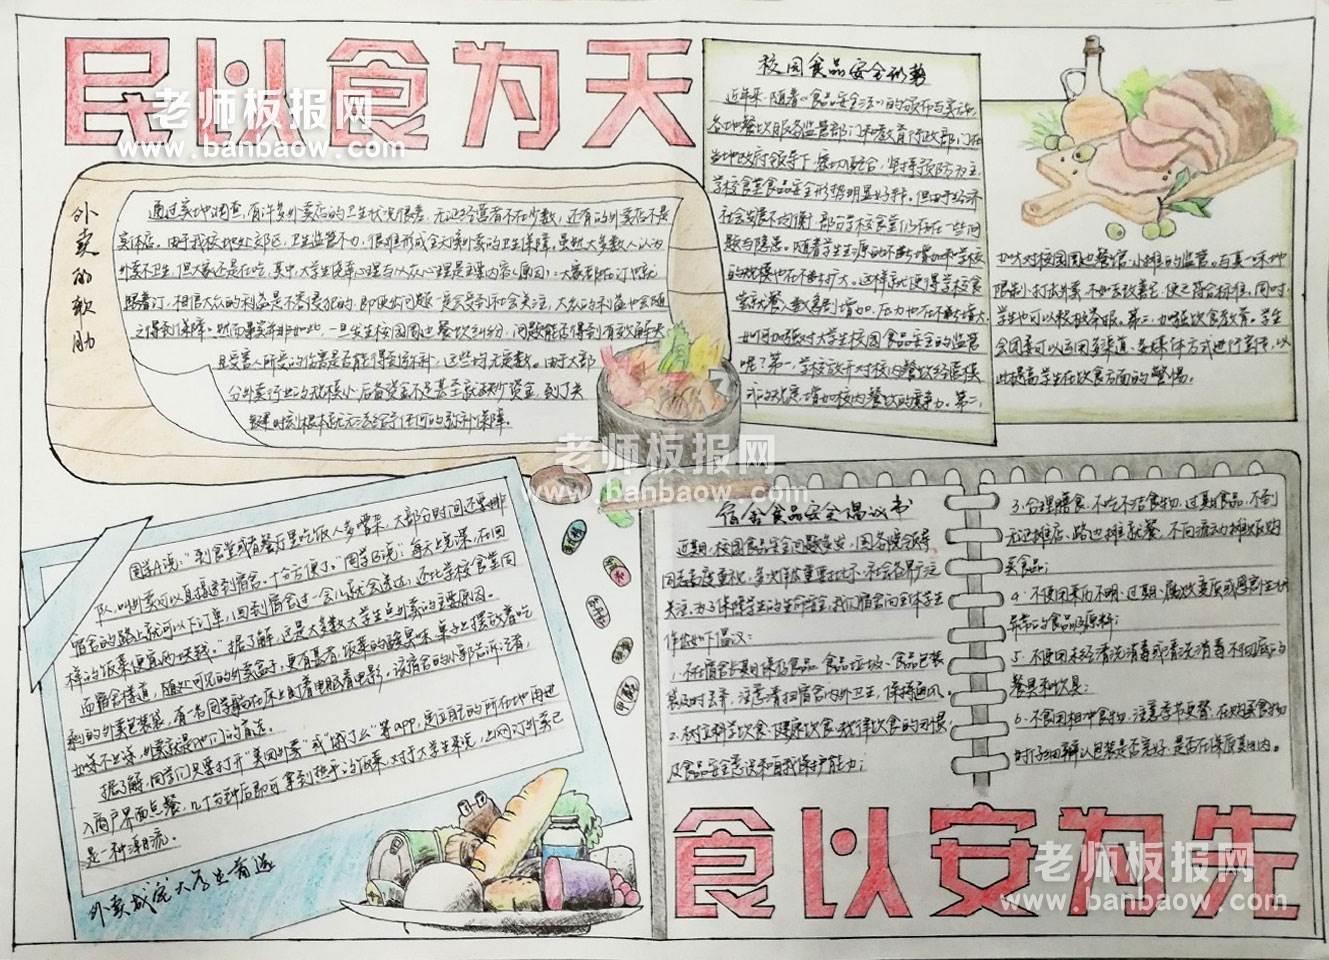 民以食为天
老师板报网
www.banbaow.com
外卖的软肋
通过实地调查,有许多外卖店的卫生状况很差,无证经营者不在少数,还有的外卖店不是
实体店。由于我校地处郊区,卫生监管不力,很难形成全天候外卖的卫生保障。虽然大多数人认为
外卖不卫生,但大家还是在吃,其中,大学生侥幸心理与从众心理是主要内容(原因):大家都在订也就
跟着订,相信大众的利益是不容侵犯的,即使出问题一定会受到社会关注,大众的利益也会随
之得到保障。然而事实并非如此,一旦发生校园周边餐饮纠纷,问题能否得到有效解决
且受害人所受的伤害是否能得到弥补,这些均无定数。由于大部
分外卖行业的规模小,后备资金不足甚至缺乏资金,到了关
键时刻根本就无法给予任何的弥补保障。
校园食品安全形势
近年来,随着《食品安全法》的颁布与实施,
各地餐饮服务监管部门和教育行政部门在
当地政府领导下,密切配合,坚持预防为主,
学校食堂食品安全形势明显好转。但由于经济
社会发展不均衡,部分学校食堂仍存在一些问
题与隐患。随着学生生源的不断增加和学校
的规模也在不断扩大。这样就使得学校食
堂就餐人数急剧增加,压力也在不断增大。
如何加强对大学生校园食品安全的监管
呢?第一,学校放开对校内餐饮经营模
式的对应,增加校内餐饮的竞争力。第二,
加大对校园周边餐馆、小摊的监管。与其一味地
限制、打击外卖,不如去改善它,使之符合标准。同时,
学生也可以积极举报。第三,加强饮食教育。学生
会团委可以运用多渠道、多媒体方式进行宣传,以
此提高学生在饮食方面的警惕。
老师板报网
www.banbaow.com
同学A说:“到食堂或者餐厅里吃饭人多嘈杂,大部分时间还要排
队,叫外卖可以直接送到宿舍,十分方便。”同学B说:“每天上完课,在回
宿舍的路上就可以下订单,回到宿舍过一会儿就会送过,还比学校食堂同
样的饭菜便宜两块钱。”据了解,这是大多数大学生点外卖的主要原因。
而宿舍楼道,随处可见的外卖盒子,更有甚者,饭菜的酸臭味,桌子上摆放着吃
剩的外卖包装袋,有一名同学躺在床上盯着电脑看电影。该宿舍的小郭告诉记者,
如寝不出寝,外卖就是他们的首选。
据了解,同学们只要打开“美团外卖”或“饿了么”等app,定位所的所在地再进
入商户界面点餐,几十分钟后即可拿到热乎的饭菜,对于大学生来说,上网订外卖已
是一种潮流。
外卖成宅大学生首选
宿舍食品安全倡议书
近期,校园食品安全问题多发,国务院领导
同志高度重视,多次作出重要批示,社会各界广泛
关注,为了保障学生的生命安全,我们宿舍向全体学生
作出如下倡议:
1.不在宿舍长期保存食品,食品垃圾、食品包装
袋及时丢弃,注意清扫宿舍内外卫生,保持通风。
2.树立科学饮食、健康饮食、规律饮食的习惯,
及食品安全意识和自我保护能力;
3.合理膳食,不吃不洁食物,过期食品,不到
无证摊店、路边摊就餐,不向流动摊贩购
买食品;
4.不使用来历不明、过期、腐败变质或感官性状
异常的食品及原料;
5.不使用未经清洗消毒或清洗消毒不彻底的
餐具和饮具;
6.不食用相冲食物,注意季节更替,在购买食物
时仔细辨认包装是否完好,是否在保质期内。
食以安为先
老师板报网
www.banbaow.com